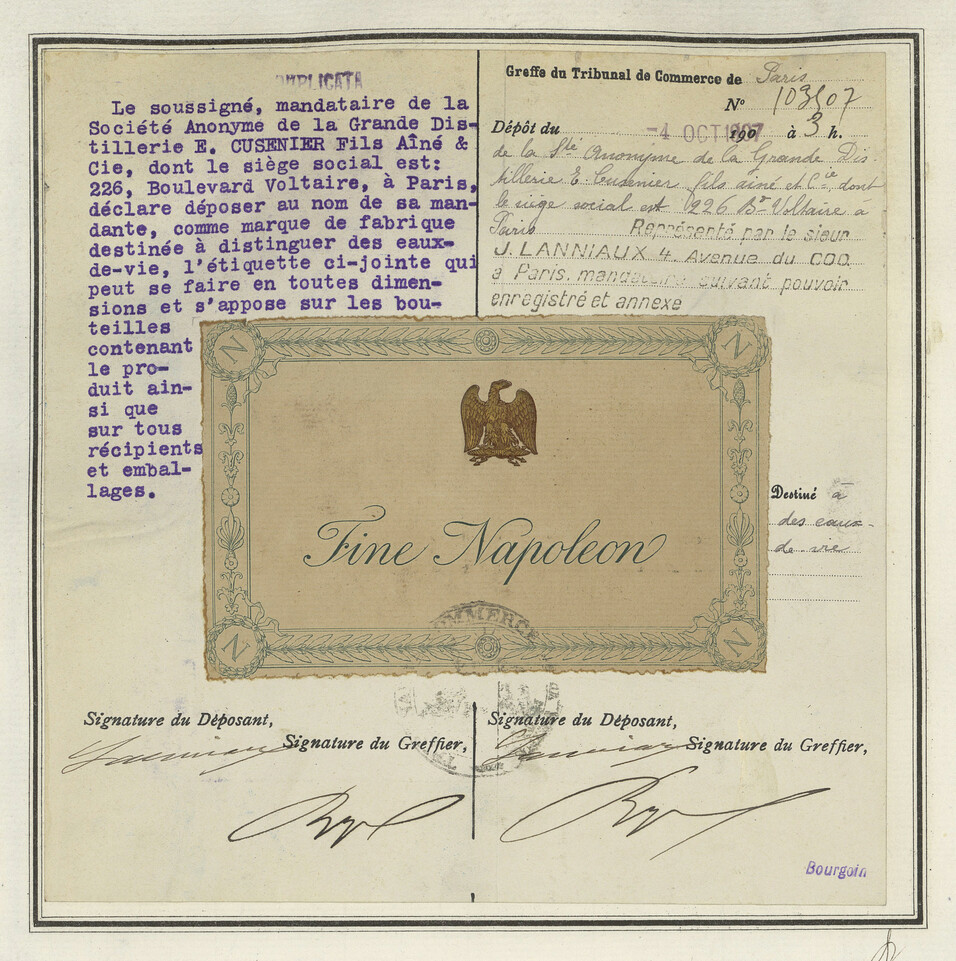 DUPLICATA
Le soussigné, mandataire de la
Société Anonyme de la Grande Dis-
tillerie E. CUSENIER Fils Aîné &
Cie, dont le siège social est:
226, Boulevard Voltaire, à Paris,
déclare déposer au nom de sa man-
dante, comme marque de fabrique
destinée à distinguer des eaux-
de-vie, l'étiquette ci-jointe qui
peut se faire en toutes dimen-
sions et s'appose sur les bou-
teilles
contenant
le pro-
duit ain-
si que
sur tous
récipients
et embal-
lages.
Greffe du Tribunal de Commerce de Paris
N°
Dépôt du -4 OCT 1907 190 à 3 h.
de la Sté Anonyme de la Grande Dis-
tillerie E. Cusenier fils ainé et Cie, dont
le siège social est 226 Bd Voltaire à
Paris Représenté par le sieur
J. LANNIAUX 4, Avenue du COQ
à Paris, mandataire suivant pouvoir
enregistré et annexe
N
N
Fine Napoleon
N
N
Destiné à
des eaux-
de vie
COMMERCE
Signature du Déposant,
Signature du Greffier,
Signature du Déposant,
Signature du Greffier,
Bourgoin